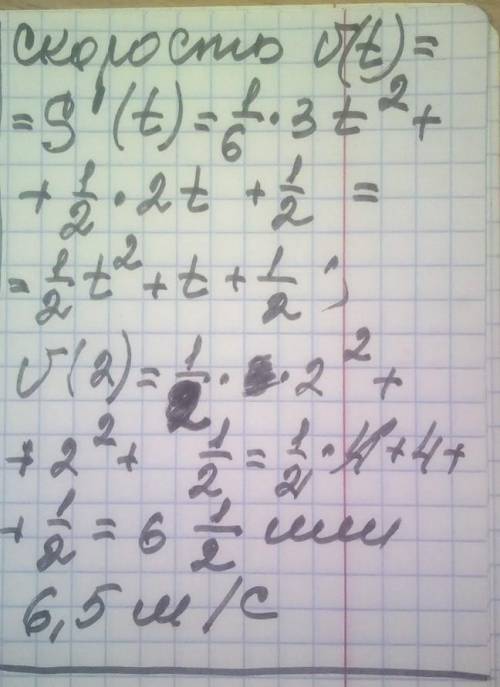 скорость v(t)=
= S'(t) = 1/6 · 3t² +
+ 1/2 · 2t + 1/2 =
= 1/2 t² + t + 1/2 ;
v(2) = 1/2 · · 2² +
+ 2² + 1/2 = 1/2 · 4 + 4 +
+ 1/2 = 6 1/2 или
6,5 м/с